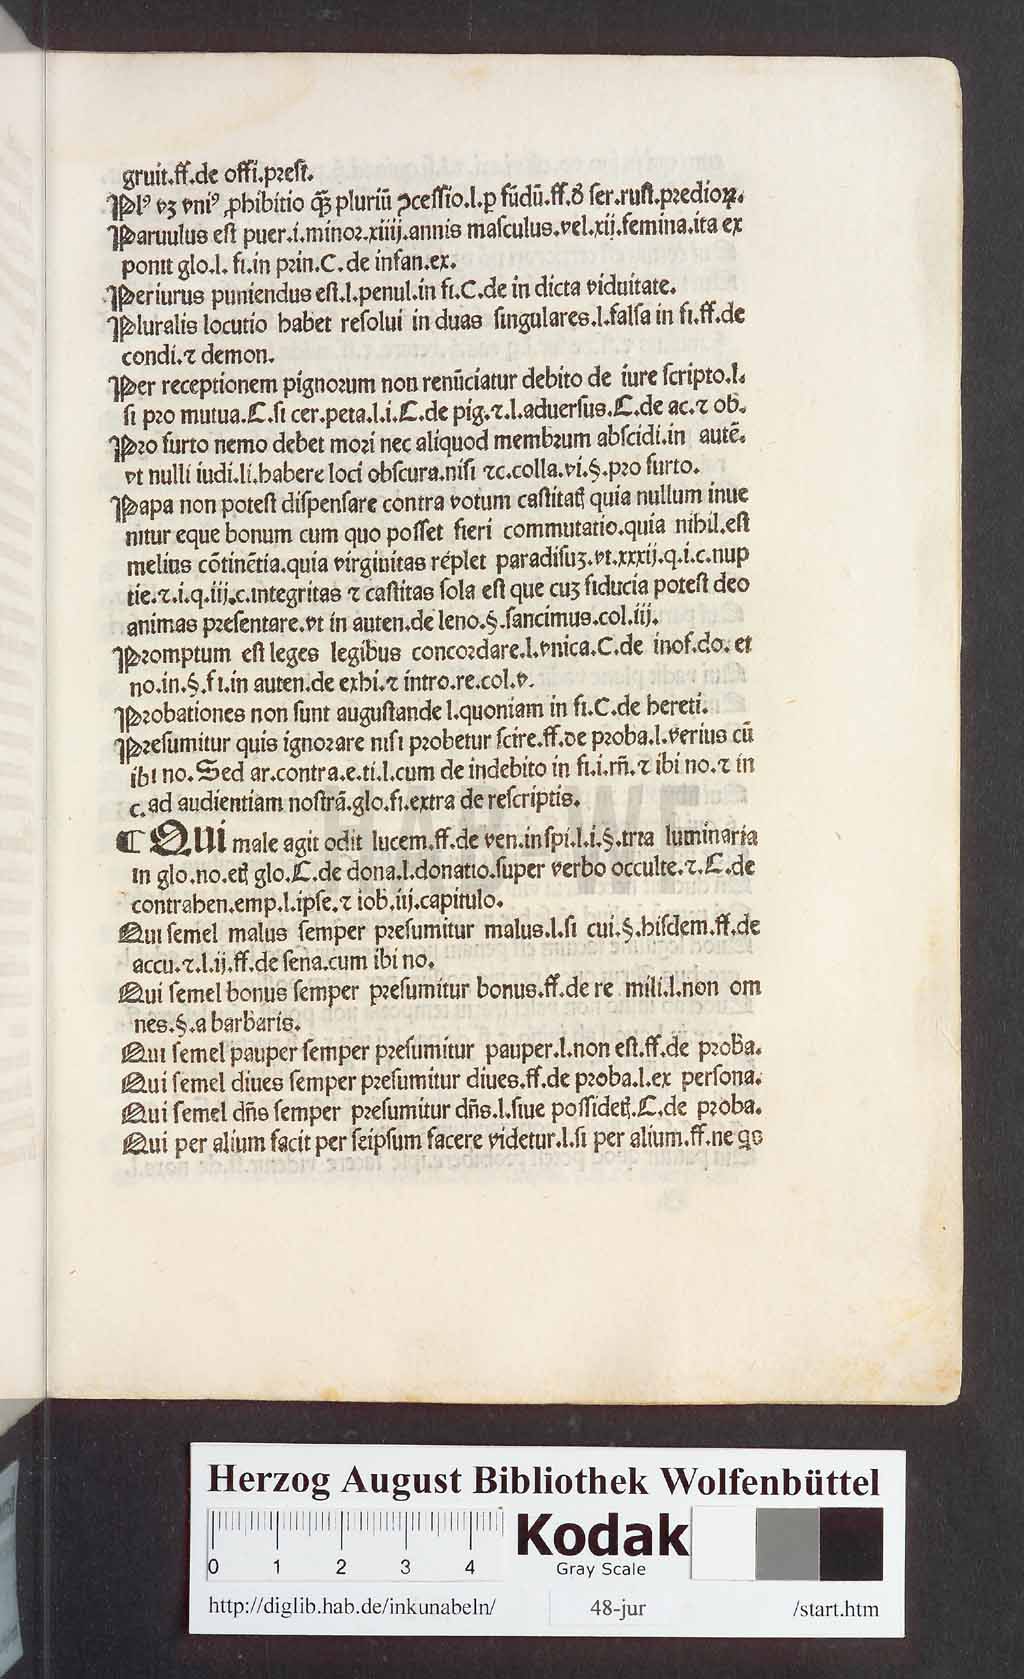 gruit.ff.de offi.prest.
Plꝰ vꝫ vniꝰ ꝓhibitio qꝫ̄ pluriū ꝯcessio.l.ꝑ fūdū.ff.ð ser.rust.predioꝝ.
Paruulus est puer.i.minor.xiiij.annis masculus.vel.xij.femina.ita ex
ponit glo.l. fi.in prin.C.de infan.ex.
Periurus puniendus est.l.penul.in fi.C.de in dicta viduitate.
Pluralis locutio habet resolui in duas singulares.l.falsa in fi.ff.de
condi.⁊ demon.
Per receptionem pignorum non renūciatur debito de iure scripto.l.
si pro mutua.C.si cer.peta.l.i.C.de pig.⁊.l.aduersus.C.de ac.⁊ ob.
Pro furto nemo debet mori nec aliquod membrum abscidi.in autē.
vt nulli iudi.li.habere loci obscura.nisi ⁊c.colla.vi.§.pro furto.
Papa non potest dispensare contra votum castitatꝭ quia nullum inue
nitur eque bonum cum quo posset fieri commutatio.quia nihil.est
melius cōtinētia.quia virginitas replet paradisuꝫ.vt.xxxij.q.i.c.nup
tie.⁊.i.q.iij.c.integritas ⁊ castitas sola est que cuꝫ fiducia potest deo
animas presentare.vt in auten.de leno.§.sancimus.col.iij.
Promptum est leges legibus concordare.l.vnica.C.de inof.do. et
no.in.§.fi.in auten.de exhi.⁊ intro.re.col.v.
Probationes non sunt augustande l.quoniam in fi.C.de hereti.
Presumitur quis ignorare nisi probetur scire.ff.de proba.l.verius cū
ibi no. Sed ar.contra.e.ti.l.cum de indebito in fi.i.rn̄.⁊ ibi no.⁊ in
c.ad audientiam nostrā.glo.fi.extra de rescriptis.
¶ QUi male agit odit lucem.ff.de ven.inspi.l.i.§.trta luminaria
in glo.no.etꝭ glo.C.de dona.l.donatio.super verbo occulte.⁊.C.de
contrahen.emp.l.ipse.⁊ iob.iij.capitulo.
Qui semel malus semper presumitur malus.l.si cui.§.hisdem.ff.de
accu.⁊.l.ij.ff.de sena.cum ibi no.
Qui semel bonus semper presumitur bonus.ff.de re mili.l.non om
nes.§.a barbaris.
Qui semel pauper semper presumitur pauper.l.non est.ff.de proba.
Qui semel diues semper presumitur diues.ff.de proba.l.ex persona.
Qui semel dn̄s semper presumitur dn̄s.l.siue possidetꝭ.C.de proba.
Qui per alium facit per seipsum facere videtur.l.si per alium.ff.ne qo
HAB-WF
Herzog August Bibliothek Wolfenbüttel
0 1 2 3 4
Kodak
Gray Scale
http://diglib.hab.de/inkunabeln/ 48-jur /start.htm